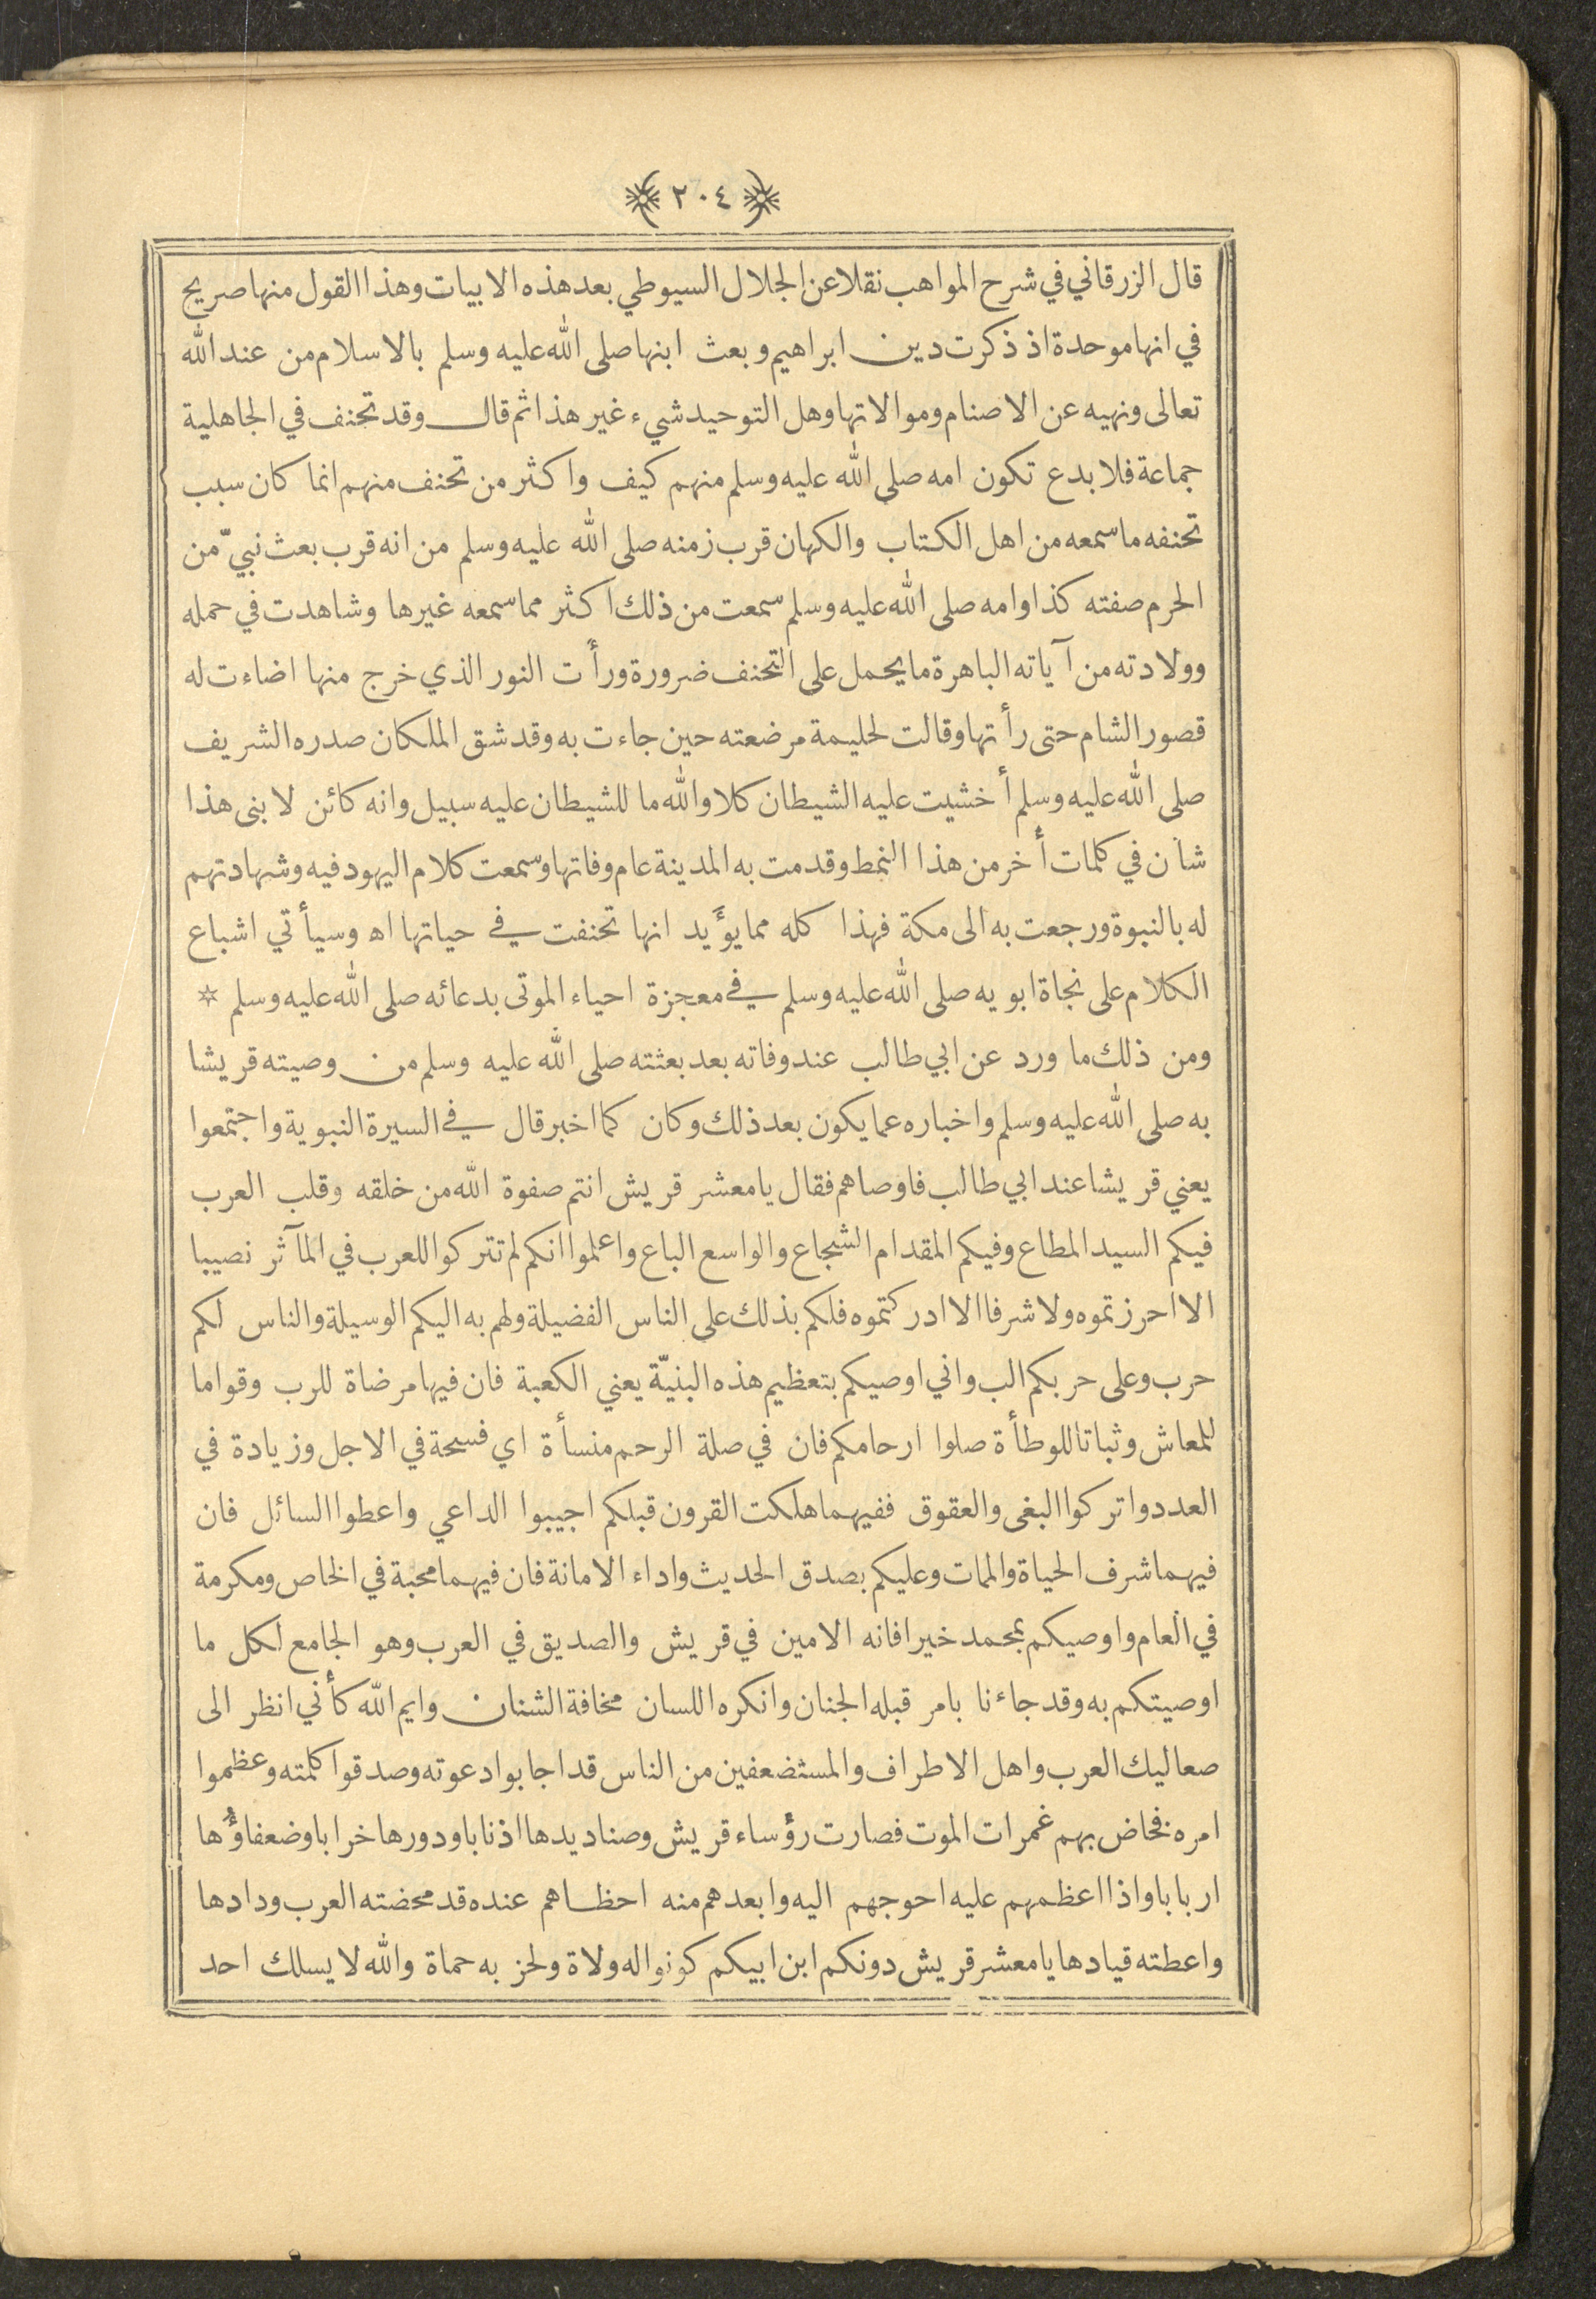 ﴿٢٠٤﴾
قال الزرقاني في شرح المواهب نقلا عن الجلال السيوطي بعد هذه الابيات وهذا القول منها صريح
في انها موحدة اذ ذكرت دين ابراهيم وبعث ابنها صلى الله عليه وسلم بالاسلام من عند الله
تعالى ونهيه عن الاصنام وموالاتها وهل التوحيد شيء غير هذا ثم قال وقد تحنف في الجاهلية
جماعة فلا بدع تكون امه صلى الله عليه وسلم منهم كيف واكثر من تحنف منهم انما كان سبب
تحنفه ما سمعه من اهل الكتاب والكهان قرب زمنه صلى الله عليه وسلم من انه قرب بعث نبيّ من
الحرم صفته كذا وامه صلى الله عليه وسلم سمعت من ذلك اكثر مما سمعه غيرها وشاهدت في حمله
وولادته من آياته الباهرة ما يحمل على التحنف ضرورة ورأت النور الذي خرج منها اضاءت له
قصور الشام حتى رأتها وقالت لحليمة مرضعته حين جاءت به وقد شق الملكان صدره الشريف
صلى الله عليه وسلم أخشيت عليه الشيطان كلا والله ما للشيطان عليه سبيل وانه كائن لابنى هذا
شأن في كلمات أخر من هذا النمط وقدمت به المدينة عام وفاتها وسمعت كلام اليهود فيه وشهادتهم
له بالنبوة ورجعت به الى مكة فهذا كله مما يؤيد انها تحنفت في حياتها اه وسيأتي اشباع
الكلام على نجاة ابويه صلى الله عليه وسلم في معجزة احياء الموتى بدعائه صلى الله عليه وسلم ☆
ومن ذلك ما ورد عن ابي طالب عند وفاته بعد بعثته صلى الله عليه وسلم من وصيته قريشا
به صلى الله عليه وسلم واخباره عما يكون بعد ذلك وكان كما اخبر قال في السيرة النبوية واجتمعوا
يعني قريشا عند ابي طالب فاوصاهم فقال يا معشر قريش انتم صفوة الله من خلقه وقلب العرب
فيكم السيد المطاع وفيكم المقدام الشجاع والواسع الباع واعلموا انكم لم تتركوا للعرب في المآثر نصيبا
الا احرزتموه ولا شرفا الا ادركتموه فلكم بذلك على الناس الفضيلة ولهم به اليكم الوسيلة والناس لكم
حرب وعلى حربكم الب واني اوصيكم بتعظيم هذه البنيّة يعني الكعبة فان فيها مرضاة للرب وقواما
للمعاش وثباتا للوطأة صلوا ارحامكم فان في صلة الرحم منسأة اي فسحة في الاجل وزيادة في
العدد واتركوا البغى والعقوق ففيهما هلكت القرون قبلكم اجيبوا الداعي واعطوا السائل فان
فيهما شرف الحياة والممات وعليكم بصدق الحديث واداء الامانة فان فيهما محبة في الخاص ومكرمة
في العام واوصيكم بمحمد خيرا فانه الامين في قريش والصديق في العرب وهو الجامع لكل ما
اوصيتكم به وقد جاءنا بامر قبله الجنان وانكره اللسان مخافة الشنان وايم الله كأني انظر الى
صعاليك العرب واهل الاطراف والمستضعفين من الناس قد اجابوا دعوته وصدقوا كلمته وعظموا
امره فخاض بهم غمرات الموت فصارت رؤساء قريش وصناديدها اذنابا ودورها خرابا وضعفاؤها
اربابا واذا اعظمهم عليه احوجهم اليه وابعدهم منه احظاهم عنده قد محضته العرب ودادها
واعطته قيادها يا معشر قريش دونكم ابن ابيكم كونوا له ولاة ولحز به حماة والله لا يسلك احد